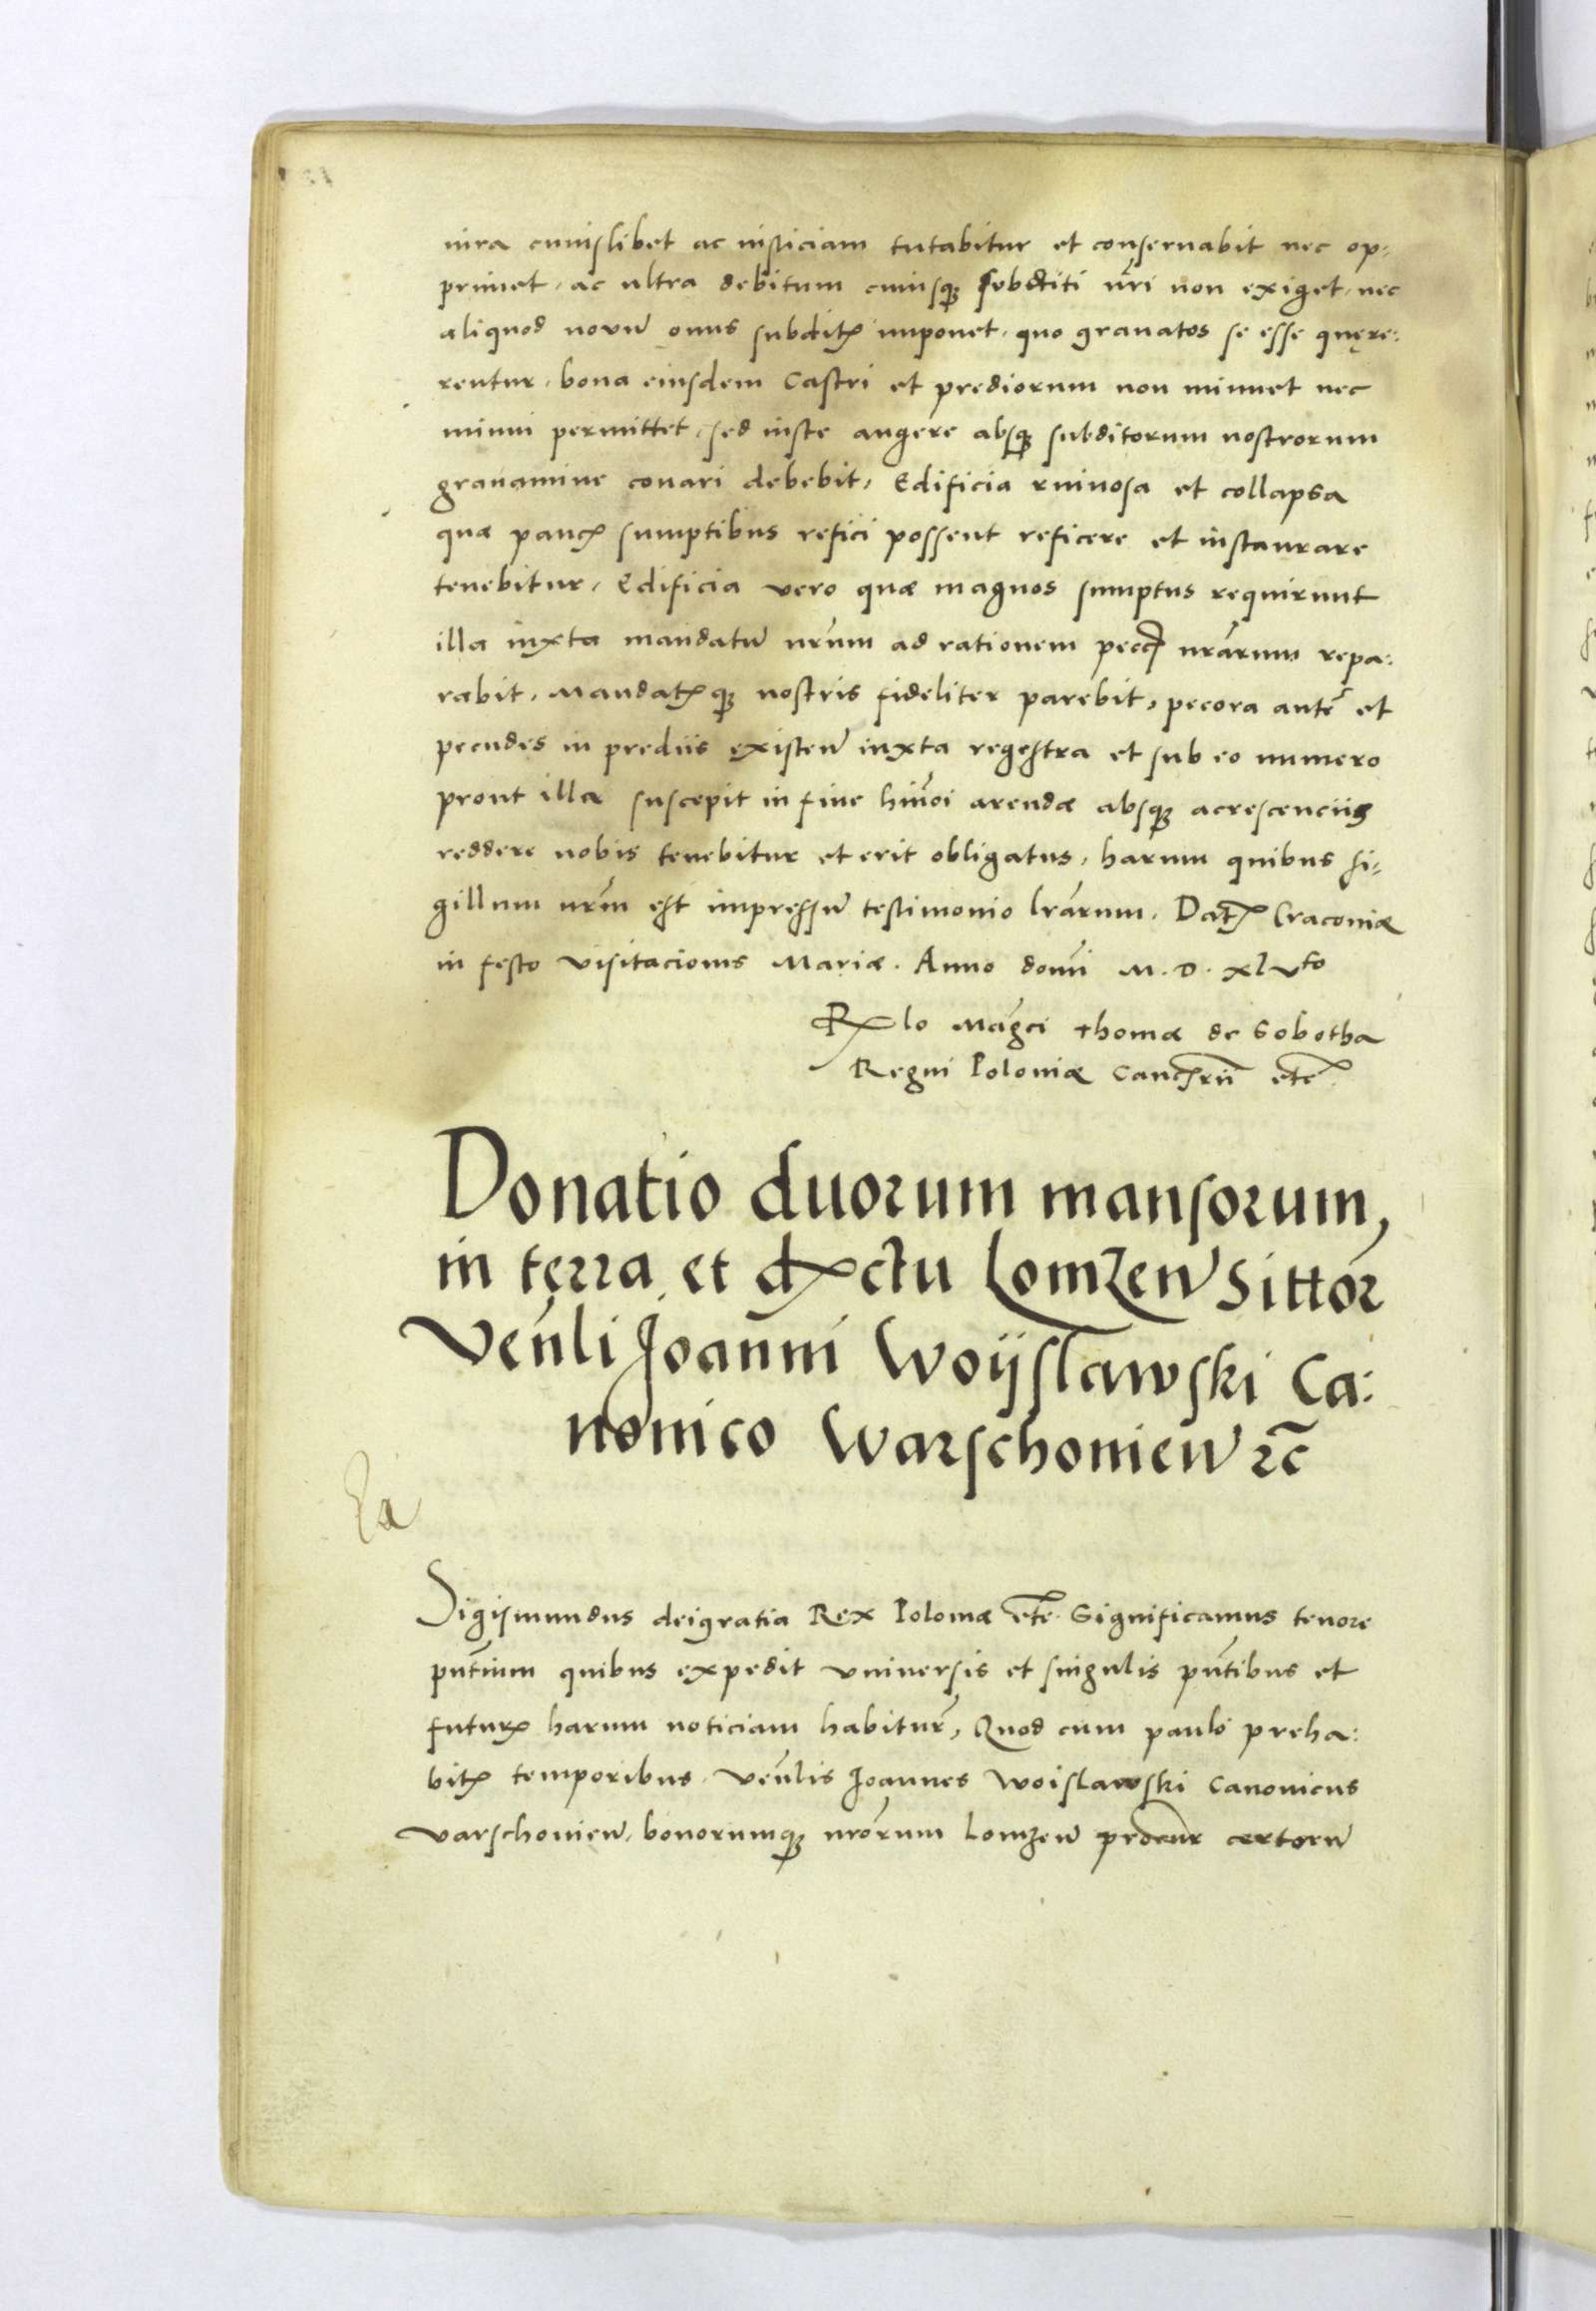 iura cuiuslibet ac iusticiam tutabitur et conservabit nec op-
primet, ac ultra debitum cuiusq3 subditi nr̃i non exiget, nec
aliquod novũ onus subditꝭ imponet, quo gravatos se esse quęre:
rentur, bona eiusdem Castri et prediorum non minuet nec
minui permittet, sed iuste augere absq3 subditorum nostrorum
gravamine conari debebit, Edificia ruinosa et collapsa
quæ paucꝭ sumptibus refici possent reficere et instaurare
tenebitur, Edificia vero quæ magnos sumptus requirunt
illa iuxta mandatũ nrũm ad rationem pecc nrãrum repa:
rabit, Mandatꝭq3 nostris fideliter parebit, pecora autẽ et
pecudes in prediis existeñ iuxta regestra et sub eo numero
prout illa suscepit in fine hmõi arendæ absq3 acrescenciis
reddere nobis tenebitur et erit obligatus, harum quibus si-
gillum nrm̃ est impressũ testimonio lrãrum. Datꝭ Craconiæ
in festo Visitacionis Mariæ. Anno domĩ M. D. XLVto
Rlo Mãgci Thomæ de Sobotha
Regni Poloniæ Cancrii etc̃
Donatio duorum mansorum,
in terra et dctu Lomzeñ Sittor̃
Veñli Joanni Woijslawski Ca:
nonico Warschonieñ ꝛc̃
Ea
Sigismundus dei gratia Rex Poloniæ etc̃. Significamus tenore
pñtium quibus expedit universis et singulis pñtibus et
futurꝭ harum noticiam habiturꝭ, Quod cum paulo preha:
bitꝭ temporibus, Veñlis Joannes Woislawski Canonicus
Varschonieñ, bonorumq3 nrõrum Lomzeñ certorũ